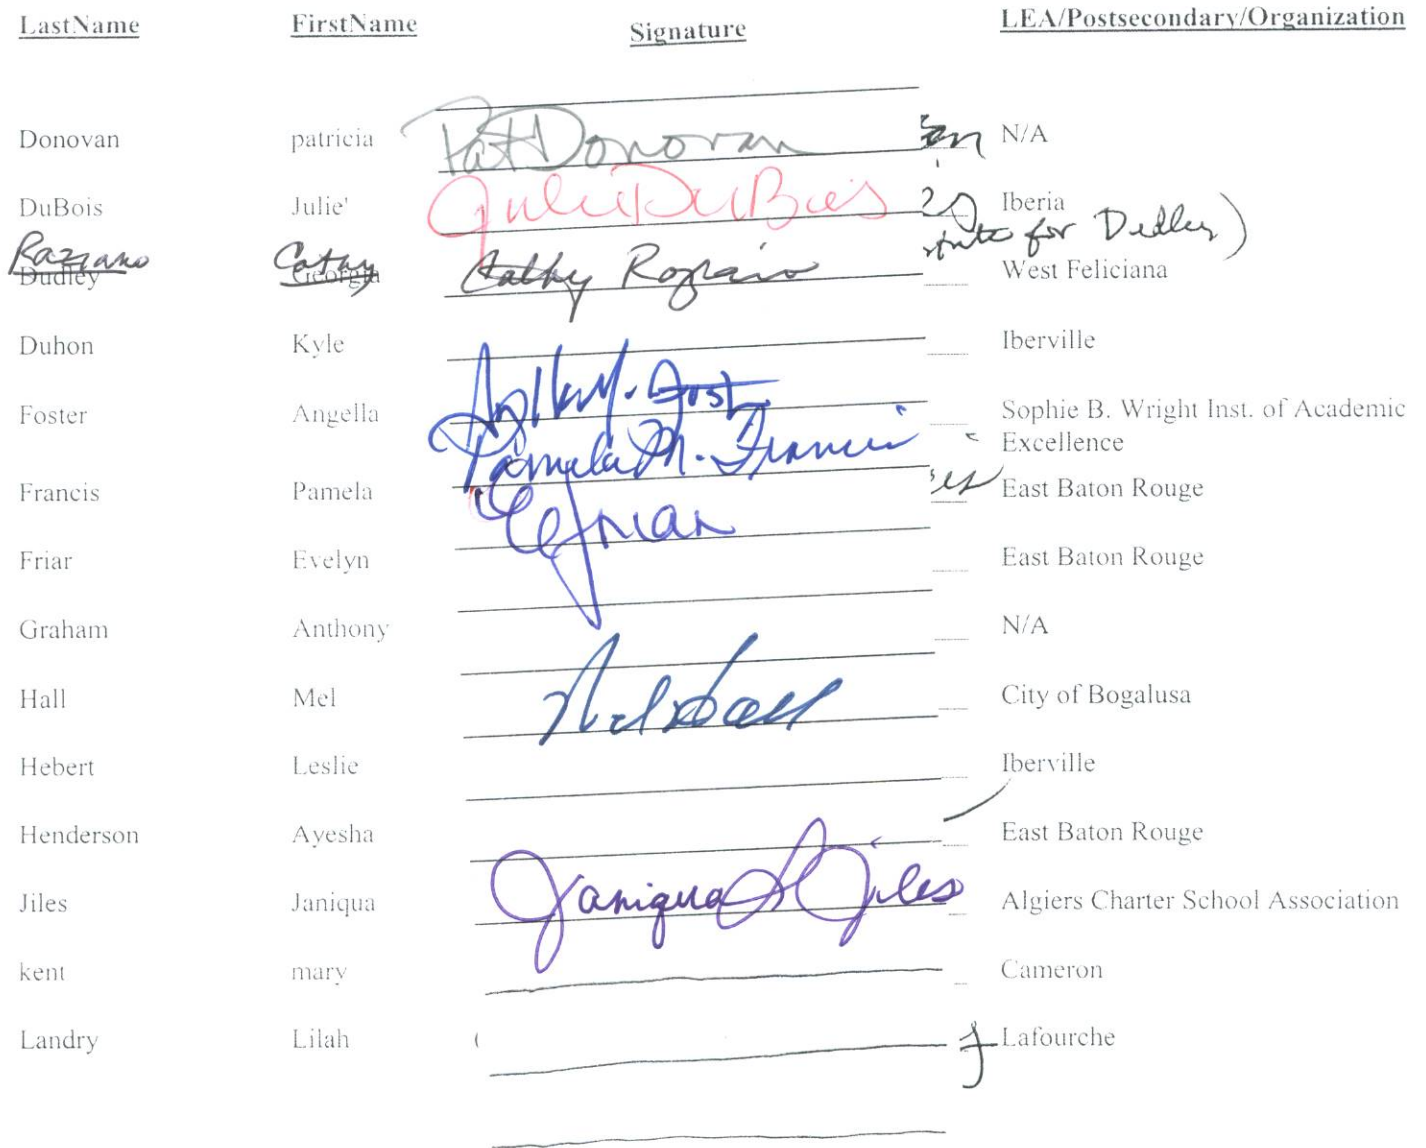 LastName FirstName Signature LEA/Postsecondary/Organization
Donovan patricia Pat Donovan N/A
DuBois Julie' Julie DuBois Iberia
Razzano Cathy Cathy for Dudley)
Dudley Georgia West Feliciana
Duhon Kyle Iberville
Foster Angella Sophie B. Wright Inst. of Academic
Excellence
Francis Pamela Pamela M. Francis East Baton Rouge
Friar Evelyn East Baton Rouge
Graham Anthony N/A
Hall Mel Mel Hall City of Bogalusa
Hebert Leslie Iberville
Henderson Ayesha East Baton Rouge
Jiles Janiqua Janiqua Jiles Algiers Charter School Association
kent mary Cameron
Landry Lilah Lafourche